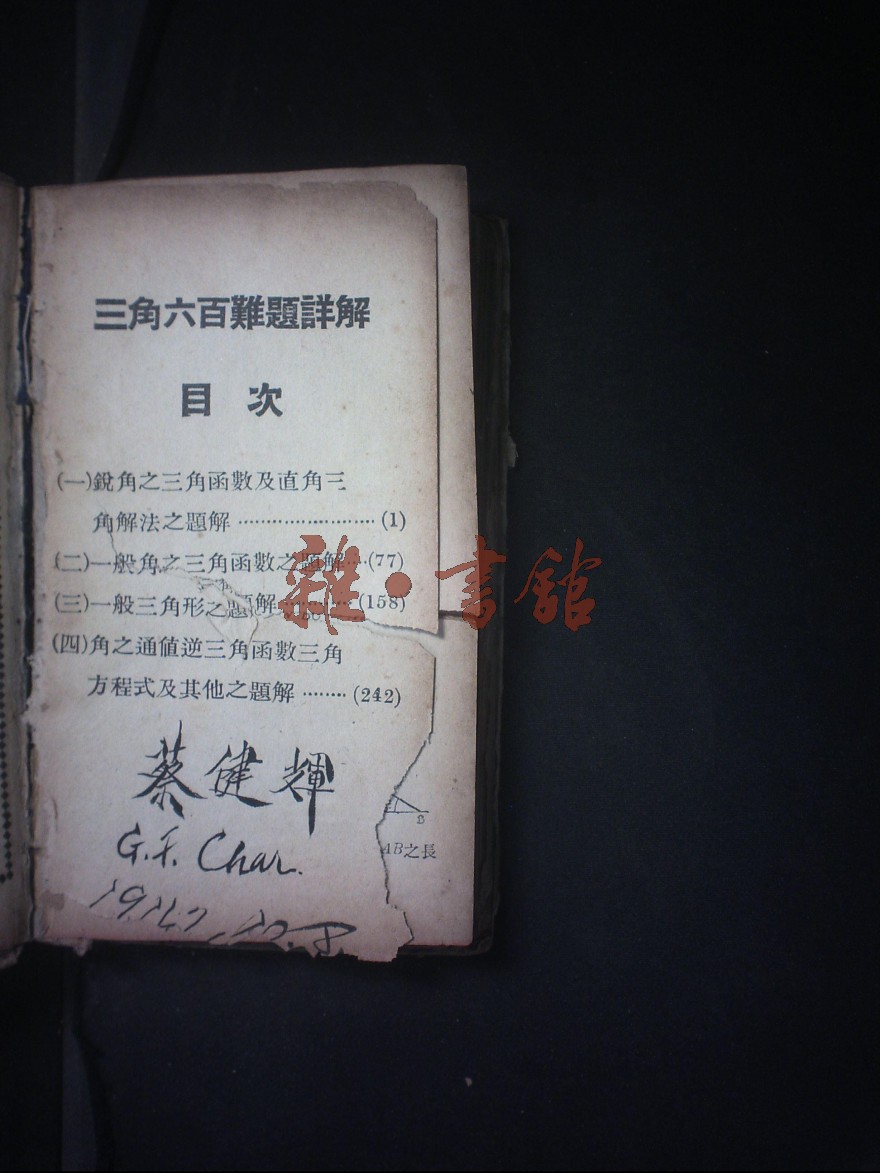 三角六百難題詳解
目次
(一)銳角之三角函數及直角三
角解法之題解……………………(1)
(二)一般角之三角函數之題解…(77)
(三)一般三角形之題解…………(158)
(四)角之通值逆三角函數三角
方程式及其他之題解………(242)
雜·書館
蔡健輝
B
AB之長
G.F. Char.